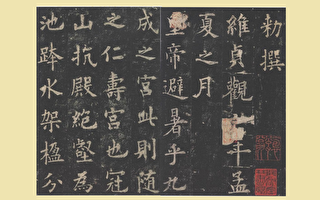 勑撰
維貞觀年孟
夏之月
皇帝避暑乎九
成之宮此則随
之仁壽宮也冠
山抗殿絶壑為
池跨水架楹分